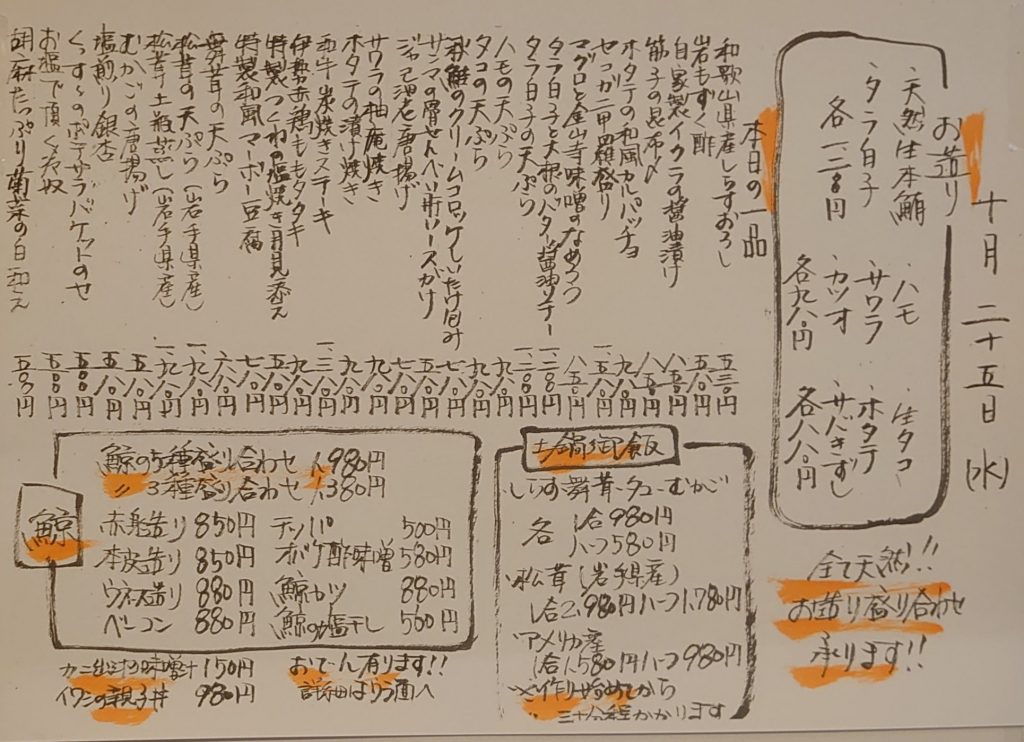 十月二十五日(水)
お造り
・天然生本鮪 ・ハモ ・生タコ
・タラ白子 ・サワラ ・ホタテ
・カツオ ・サバきずし
各一、二八〇円 各九八〇円 各八八〇円
全て天然!!
お造り盛り合わせ
承ります!!
本日の一品
和歌山県産しらすおろし 五三〇円
岩もずく酢 五八〇円
自家製イクラの醤油漬け 八五〇円
筋子の昆布〆 八五〇円
ホタテの和風カルパッチョ 九八〇円
セコガニ甲羅盛り 一、五八〇円
マグロと金山寺味噌のなめろう 八五〇円
タラ白子と大根のバター醤油ソテー 一、二八〇円
タラ白子の天ぷら 一、二八〇円
ハモの天ぷら 九八〇円
タコの天ぷら 七八〇円
秋鮭のクリームコロッケしいたけ包み 七八〇円
サンマの唐せんべい 五八〇円
ジャコ唐揚げ 七八〇円
サワラの柚庵焼き 九八〇円
ホタテの漬け焼き 九八〇円
和牛炭焼きステーキ 一、三八〇円
伊勢赤鶏ももタタキ 九八〇円
特製つくねの塩焼き月見添え 七八〇円
特製和風マーボー豆腐 七八〇円
舞茸の天ぷら 六八〇円
松茸の天ぷら(岩手県産) 一、九八〇円
松茸土瓶蒸し(岩手県産) 一、九八〇円
むかごの唐揚げ 五八〇円
塩煎り銀杏 五八〇円
ポテサラバケットのせ 五〇〇円
お塩で頂く冷奴 五〇〇円
胡麻たっぷり菊菜の白和え 五〇〇円
土鍋御飯
・しらす・舞茸・タコ・むかご
各 1合980円
ハーフ580円
・松茸(岩手県産)
1合2,980円ハーフ1,780円
・アメリカ産
1合1,580円ハーフ980円
※作り始めてから
三十分程かかります
鯨
鯨の5種盛り合わせ 1,980円
〃 3種盛り合わせ 1,380円
赤身造り 850円 チップ 500円
本皮造り 850円 オバケ酢味噌 580円
ウネス造り 880円 鯨カツ 880円
ベーコン 880円 鯨の塩干し 500円
カニ出汁の味噌汁 150円
イワシの親子丼 980円
おでん有ります!!